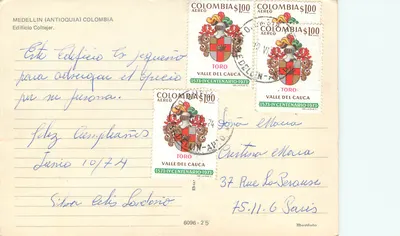 MEDELLIN (ANTIOQUIA) COLOMBIA
Edificio Coltejer.
Este Edificio Es pequeño
para albergar el aprecio
por su persona.
Feliz Cumpleaños
Junio 10/74
COLOMBIA
AEREO $1.00
TORO
VALLE DEL CAUCA
1573-IV CENTENARIO-1973
COLOMBIA
AEREO $1.00
COLOMBIA
AEREO $1.00
TORO
VALLE DEL CAUCA
1573-IV CENTENARIO-1973
COLOMBIA
AEREO $1.00
TORO
VALLE DEL CAUCA
1573-IV CENTENARIO-1973
Cristina Maria
37 Rue La Perouse
75.11-6 Paris